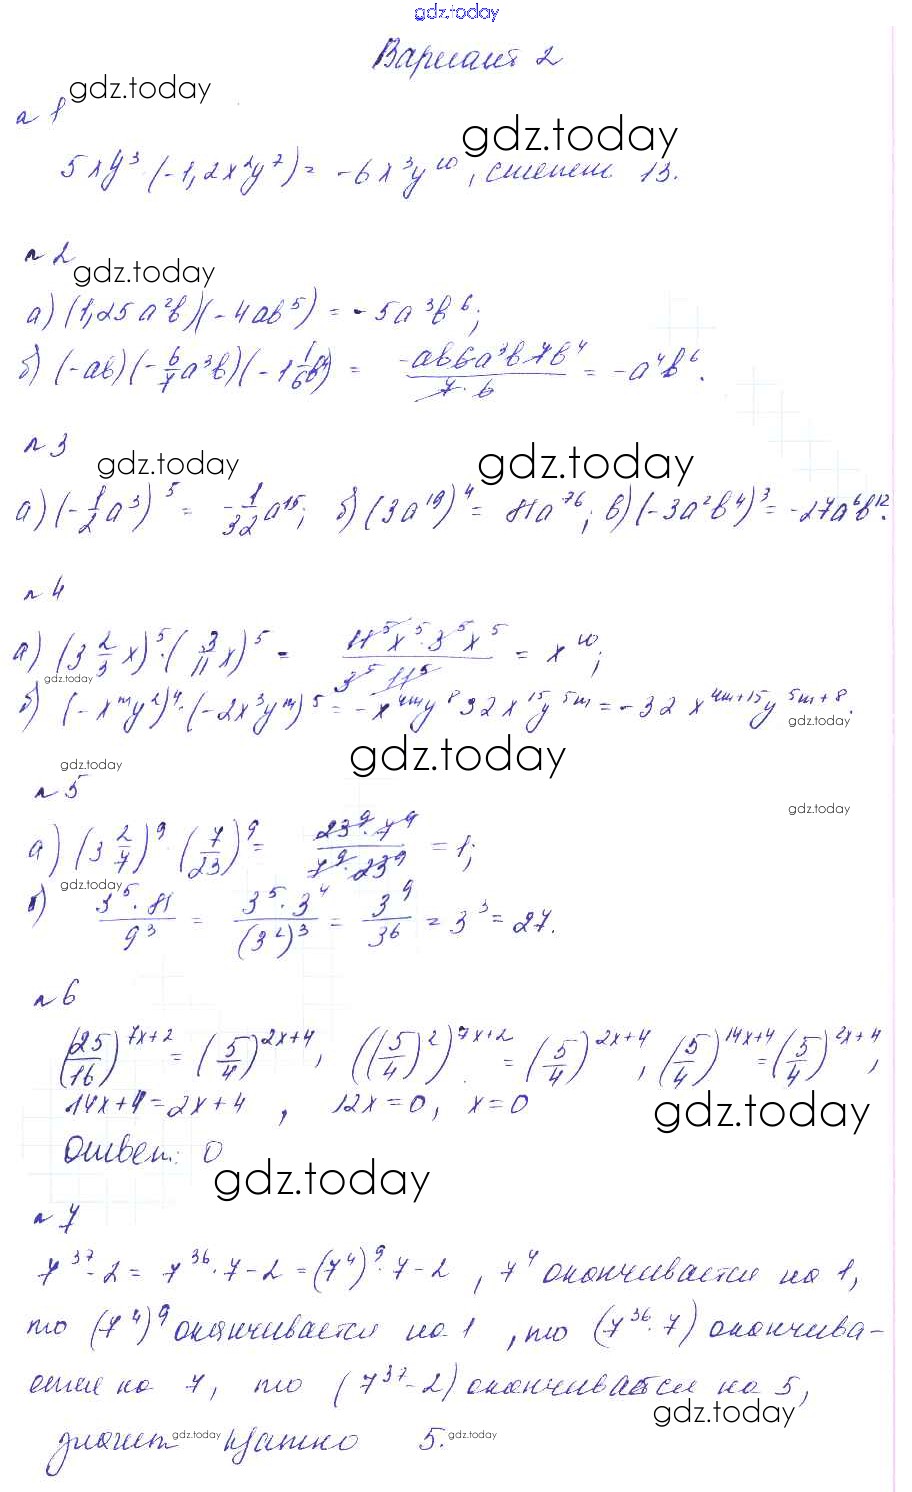 gdz.today
Вариант 2
gdz.today
№ 1
gdz.today
5xy³·(-1,2x²y⁷) = -6x³y¹⁰, степень 13.
№ 2
gdz.today
а) (1,25a²b)(-4ab⁵) = -5a³b⁶;
б) (-ab)(-6/7a³b)(-1 1/6b⁴) = -ab6a³b7b⁴/7·6 = -a⁴b⁶.
№ 3
gdz.today gdz.today
а) (-1/2a³)⁵ = -1/32a¹⁵; б) (3a¹⁹)⁴ = 81a⁷⁶; в) (-3a²b⁴)³ = -27a⁶b¹².
№ 4
а) (3 2/3x)⁵·(3/11x)⁵ = 11⁵x⁵·3⁵x⁵/3⁵ 11⁵ = x¹⁰;
gdz.today
б) (-xᵐy²)⁴·(-2x³yᵐ)⁵ = -x⁴ᵐy⁸32x¹⁵y⁵ᵐ = -32x⁴ᵐ⁺¹⁵y⁵ᵐ⁺⁸.
gdz.today
gdz.today gdz.today
№ 5
gdz.today
а) (3 2/7)⁹·(7/23)⁹ = 23⁹·7⁹/7⁹·23⁹ = 1;
gdz.today
б) 3⁵·81/9³ = 3⁵·3⁴/(3²)³ = 3⁹/3⁶ = 3³ = 27.
№ 6
(25/16)⁷ˣ⁺² = (5/4)²ˣ⁺⁴, ((5/4)²)⁷ˣ⁺² = (5/4)²ˣ⁺⁴, (5/4)¹⁴ˣ⁺⁴ = (5/4)²ˣ⁺⁴,
14x+4 = 2x+4, 12x = 0, x = 0
gdz.today
Ответ: 0
gdz.today
№ 7
7³⁷-2 = 7³⁶·7-2 = (7⁴)⁹·7-2, 7⁴ оканчивается на 1,
то (7⁴)⁹ оканчивается на 1, то (7³⁶·7) оканчива-
ется на 7, то (7³⁷-2) оканчивается на 5,
gdz.today
значит кратно 5.
gdz.today gdz.today